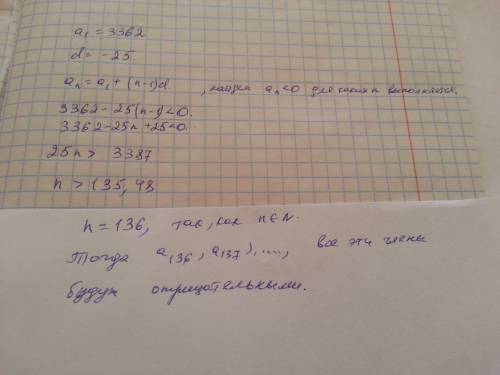 a₁ = 3362
d = -25.
aₙ = a₁ + (n-1)d , найдем aₙ<0 для каких n выполняется.
3362 - 25(n-1)<0.
3362-25n+25<0.
25n > 3387
n > 135,48
n = 136, так, как n∈N.
Тогда a₁₃₆, a₁₃₇, ...., все эти члены
будут отрицательными.